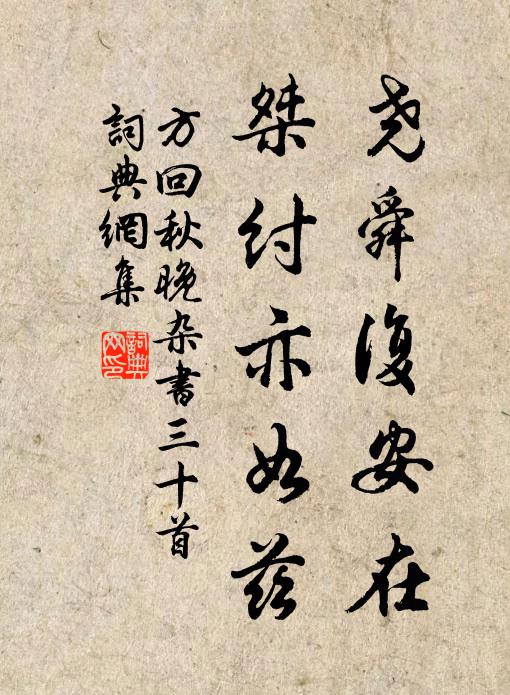 尧舜復安在
桀纣亦如兹
方回秋晚杂書三十首
詞典網集
詞典网印